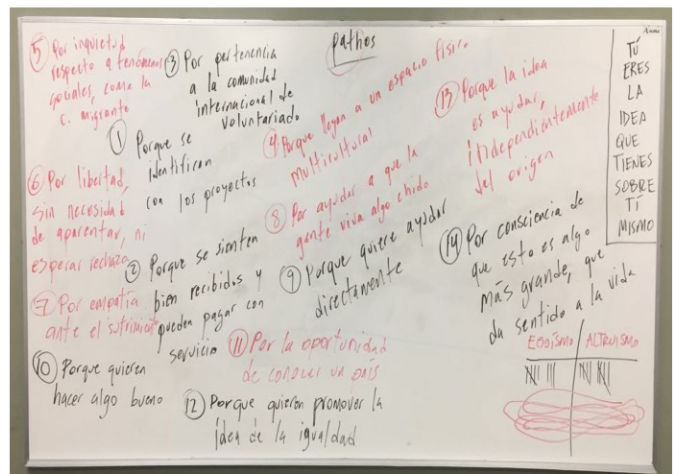 Pathos
⑤ Por inquietud
respecto a fenómenos
sociales, como la
c. migrante
③ Por pertenencia
a la comunidad
internacional de
voluntariado
① Porque se
identifican
con los proyectos
④ Porque llegan a un espacio físico
multicultural
⑬ Porque la idea
es ayudar,
independientemente
del origen
⑥ Por libertad,
sin necesidad
de aparentar, ni
esperar rechazo
② Porque se sienten
bien recibidos y
pueden pagar con
servicio
⑧ Por ayudar a que la
gente viva algo chido
⑨ Porque quiere ayudar
directamente
⑭ Por consciencia de
que esto es algo
más grande, que
da sentido a la vida
⑦ Por empatía
ante el sufrimiento
⑩ Porque quieren
hacer algo bueno
⑪ Por la oportunidad
de conocer un país
⑫ Porque quieren promover la
idea de la igualdad
TÚ
ERES
LA
IDEA
QUE
TIENES
SOBRE
TÍ
MISMO
EGOÍSMO ALTRUISMO